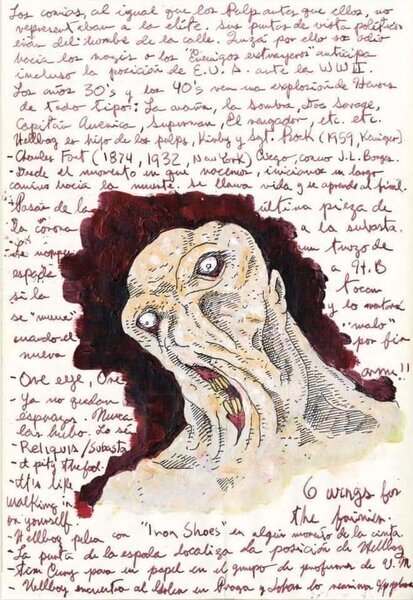 Los comics, al igual que los Pulps antes que ellos, no
representaban a la elite. sus puntos de vista políticos
eran del hombre de la calle. Quizá por ello su odio
hacia los nazis o los "Enemigos extranjeros" anticipa
incluso la posición de E.U.A. ante la WWII.
Los años 30's y los 40's ven una explosión de Heroes
de todo tipo: La araña, la Sombra, Doc Savage,
Capitán America, Superman, El vengador, etc. etc.
Hellboy es hijo de los pulps, Kirby y Sgt. Rock (1959, Kanigher)
- Charles Fort (1874, 1932, New York) Ciego, como J.L. Borges.
- Desde el momento en que nacemos, iniciamos un largo
camino hacia la muerte. se lleva vida y se aprende al final.
- Pasan de la última pieza de
la corona a la subasta.
Se un trozo de
espada a H.B
si la tocan
se "muere" y lo matará
cuando el "malo"
nueva por fin
arm!!
- One eye, One
- Ya no quedan
esperazas. Nunca
las hubo.
- Reliquia/Subasta
- I pity the fool.
- It is like
walking
on yourself.
6 wings for
the fairies.
Hellboy pelea con "Iron Shoes" en algún momento de la cinta.
- La punta de la espada localiza la posición de Hellboy
- para un papel en el grupo de
Hellboy encuentra al en Praga y